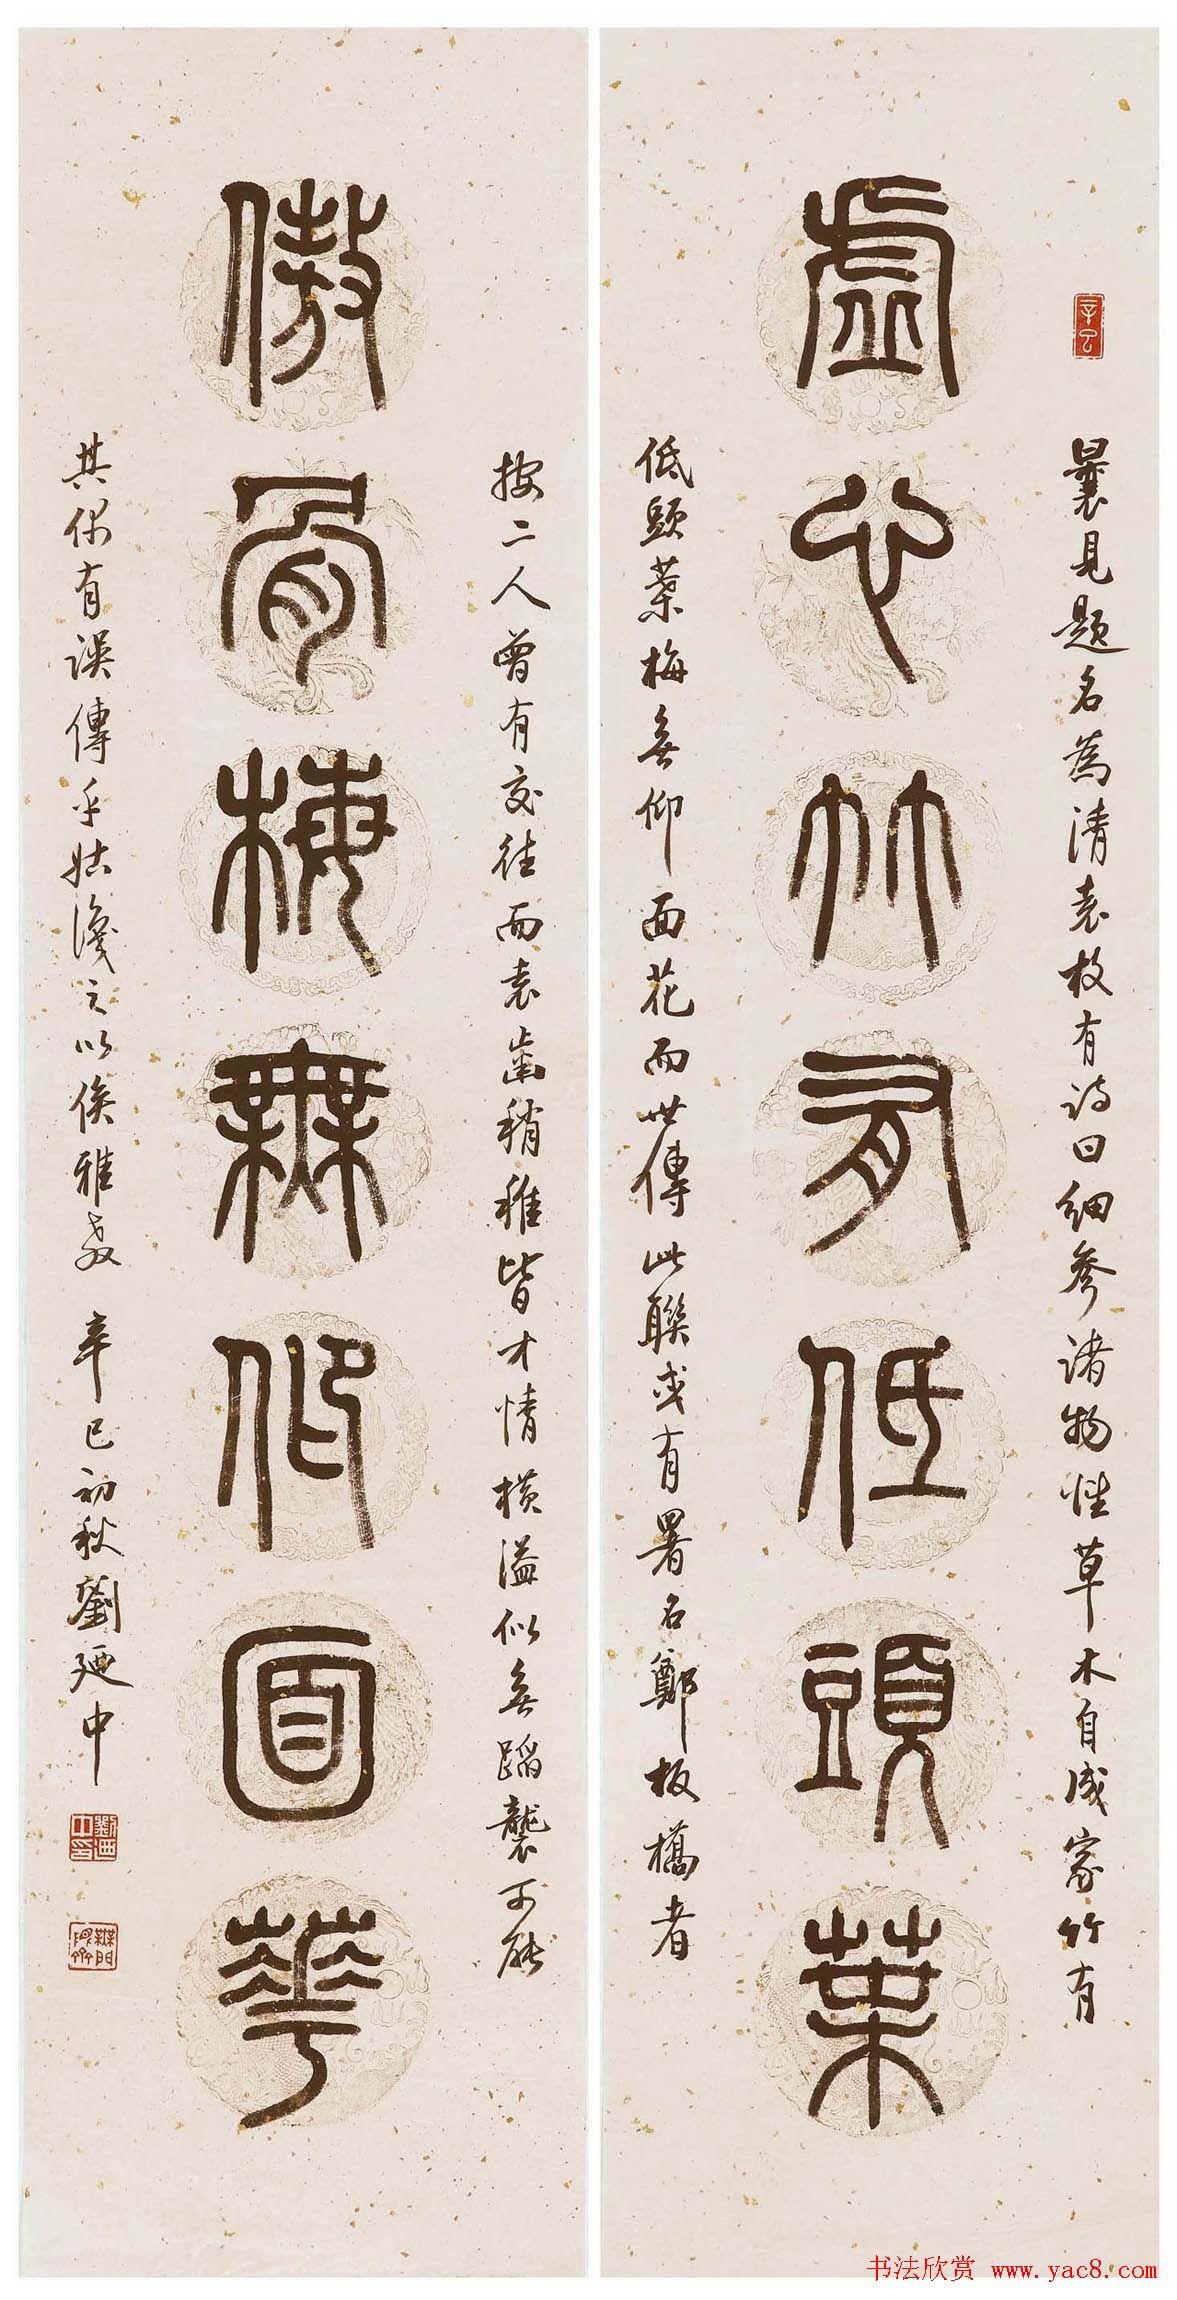 虛心竹有低頭葉
傲骨梅無仰面華
辛巳
曩見題名為清袁枚有詩曰細參諸物性草木自成家竹有
低頭葉梅無仰面花而世傳此聯或有署名鄭板橋者
按二人曾有交往而袁齒稍稚皆才情橫溢似無蹈襲可能
其你有誤傳乎姑識之以俟雅教 辛巳初秋劉廼中
劉廼中印
書法欣賞 www.yac8.com